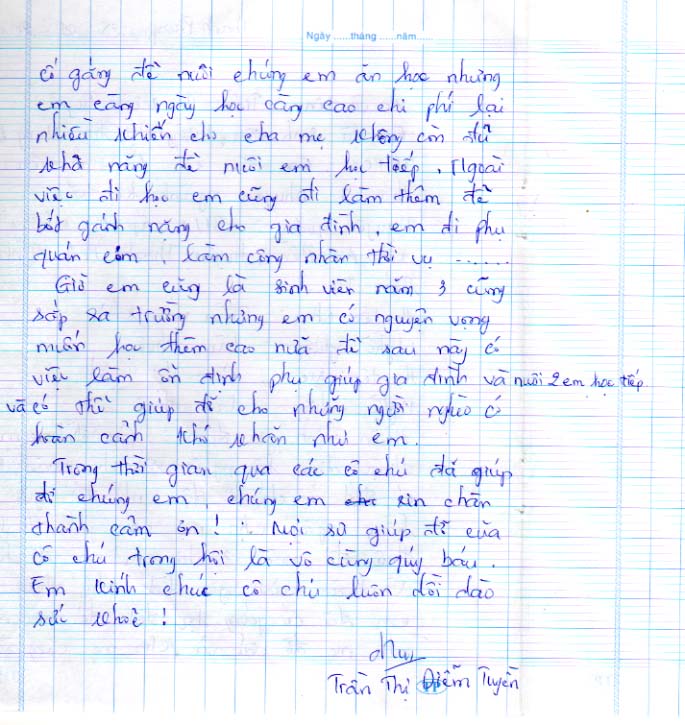 Ngày ......tháng ......năm......
cố gắng để nuôi chúng em ăn học nhưng
em càng ngày học càng cao chi phí lại
nhiều khiến cho cha mẹ không còn đủ
khả năng để nuôi em học tiếp. Ngoài
việc đi học em cũng đi làm thêm để
bớt gánh nặng cho gia đình, em đi phụ
quán cơm, làm công nhân thời vụ ......
Giờ em cũng là sinh viên năm 3 cũng
sắp xa trường nhưng em có nguyện vọng
muốn học thêm cao nữa để sau này có
việc làm ổn định phụ giúp gia đình và nuôi 2 em học tiếp
và có thể giúp đỡ cho những người nghèo có
hoàn cảnh khó khăn như em.
Trong thời gian qua các cô chú đã giúp
đỡ chúng em, chúng em xin chân
thành cảm ơn! Mọi sự giúp đỡ của
cô chú trong hội là vô cùng quý báu.
Em kính chúc cô chú luôn dồi dào
sức khoẻ!
Trần Thị Diễm Tuyền